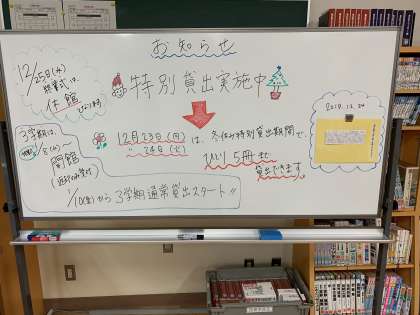 お知らせ
12/25日(水)
終業式は、
休館
となります
特別貸出実施中
2019.12.24
12月23日(月)
〃 24日(火)
は、冬休み特別貸出期間で、
ひとり 5冊まで
貸出できます。
3学期は、
1/8(水)〜
開館
(返却のみ受付)
1/10(金)から3学期通常貸出スタート!!